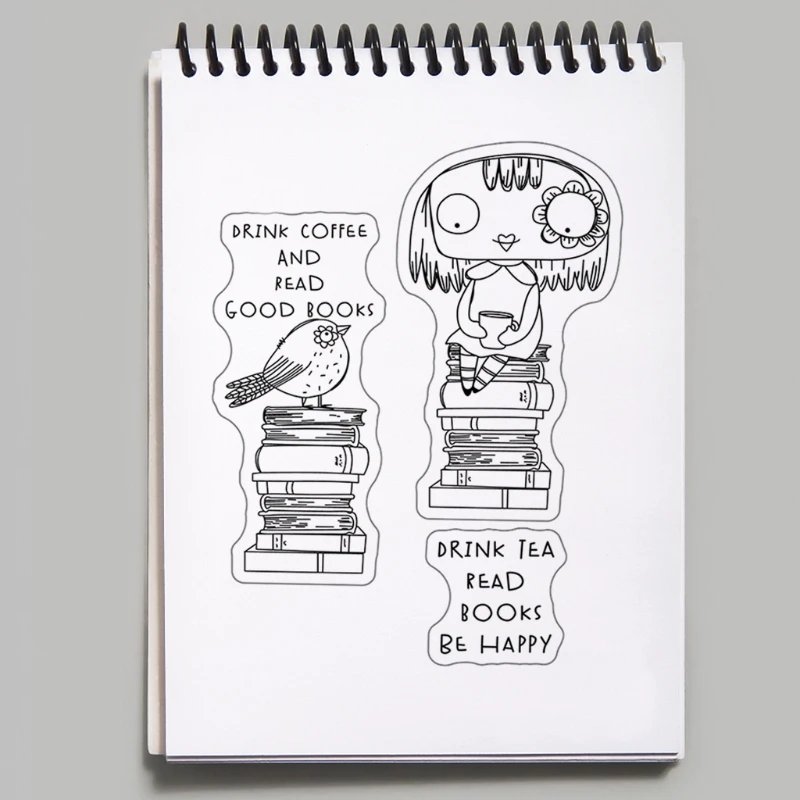 DRINK COFFEE
AND
READ
GOOD BOOKS
DRINK TEA
READ
BOOKS
BE HAPPY